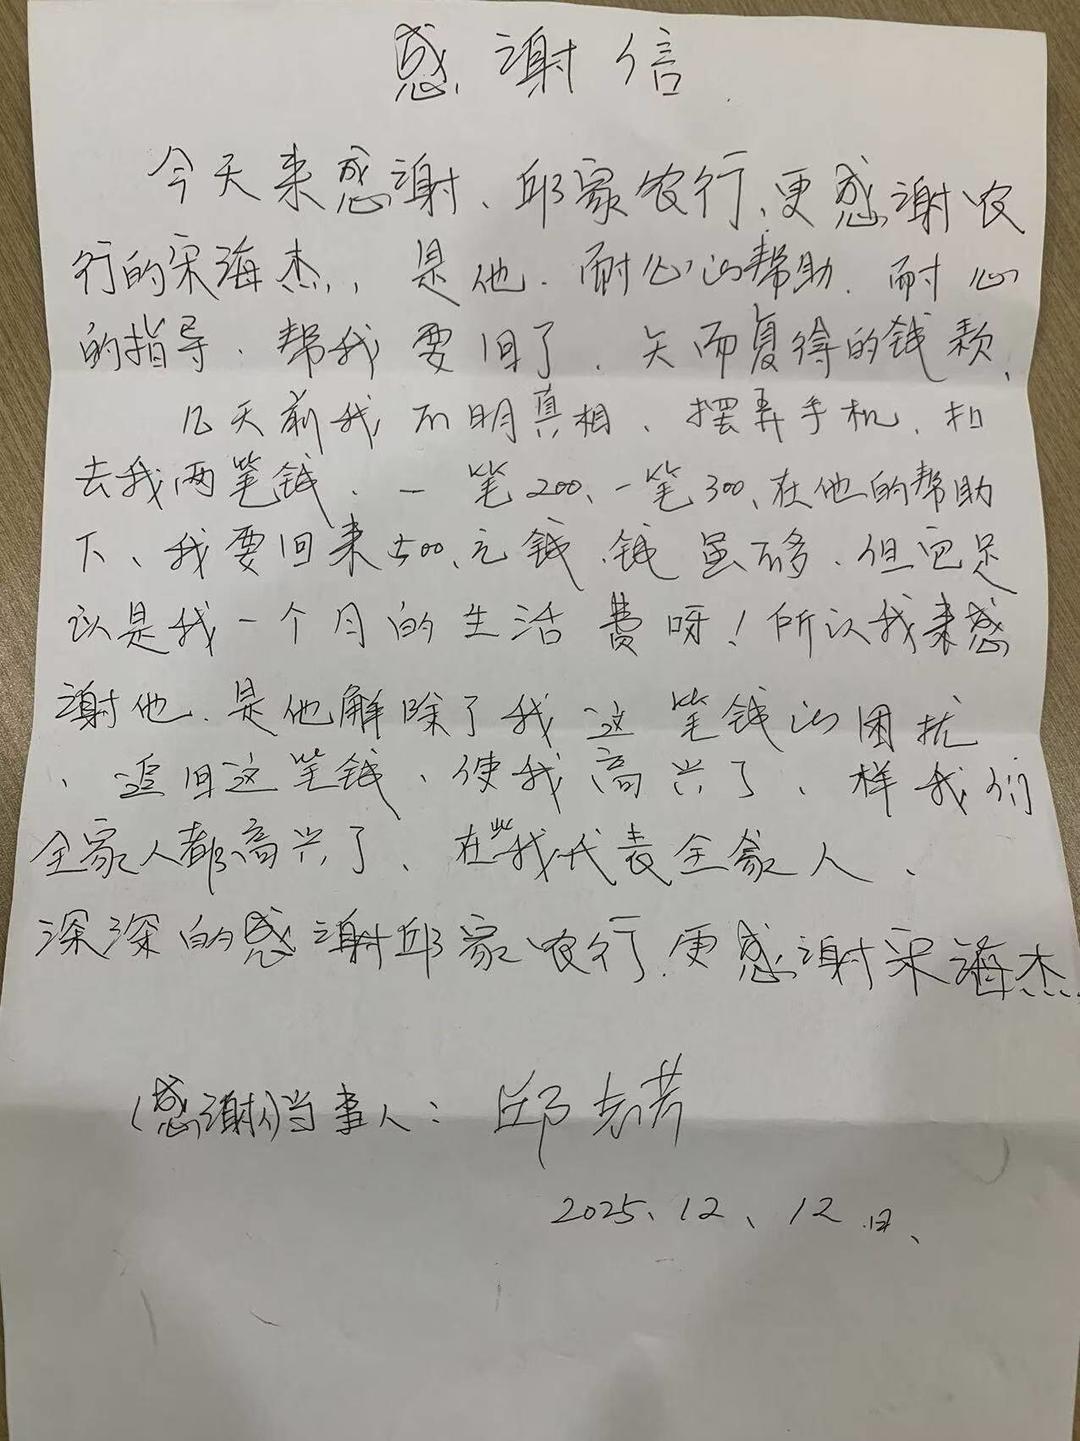 感谢信
今天来感谢、邱家农行、更感谢农
行的宋海杰,是他.耐心的帮助.耐心
的指导.帮我要回了.失而复得的钱款、
几天前我不明真相、摆弄手机、扣
去我两笔钱、一笔200、一笔300、在他的帮助
下、我要回来500、元钱、钱虽不多、但它足
以是我一个月的生活费呀!所以我来感
谢他.是他解除了我这笔钱的困扰
、追回这笔钱、使我高兴了、样我们
全家人都高兴了、在些我代表全家人、
深深的感谢邱家农行.更感谢宋海杰.
(感谢人)当事人: 邱芳
2025、12、12日、